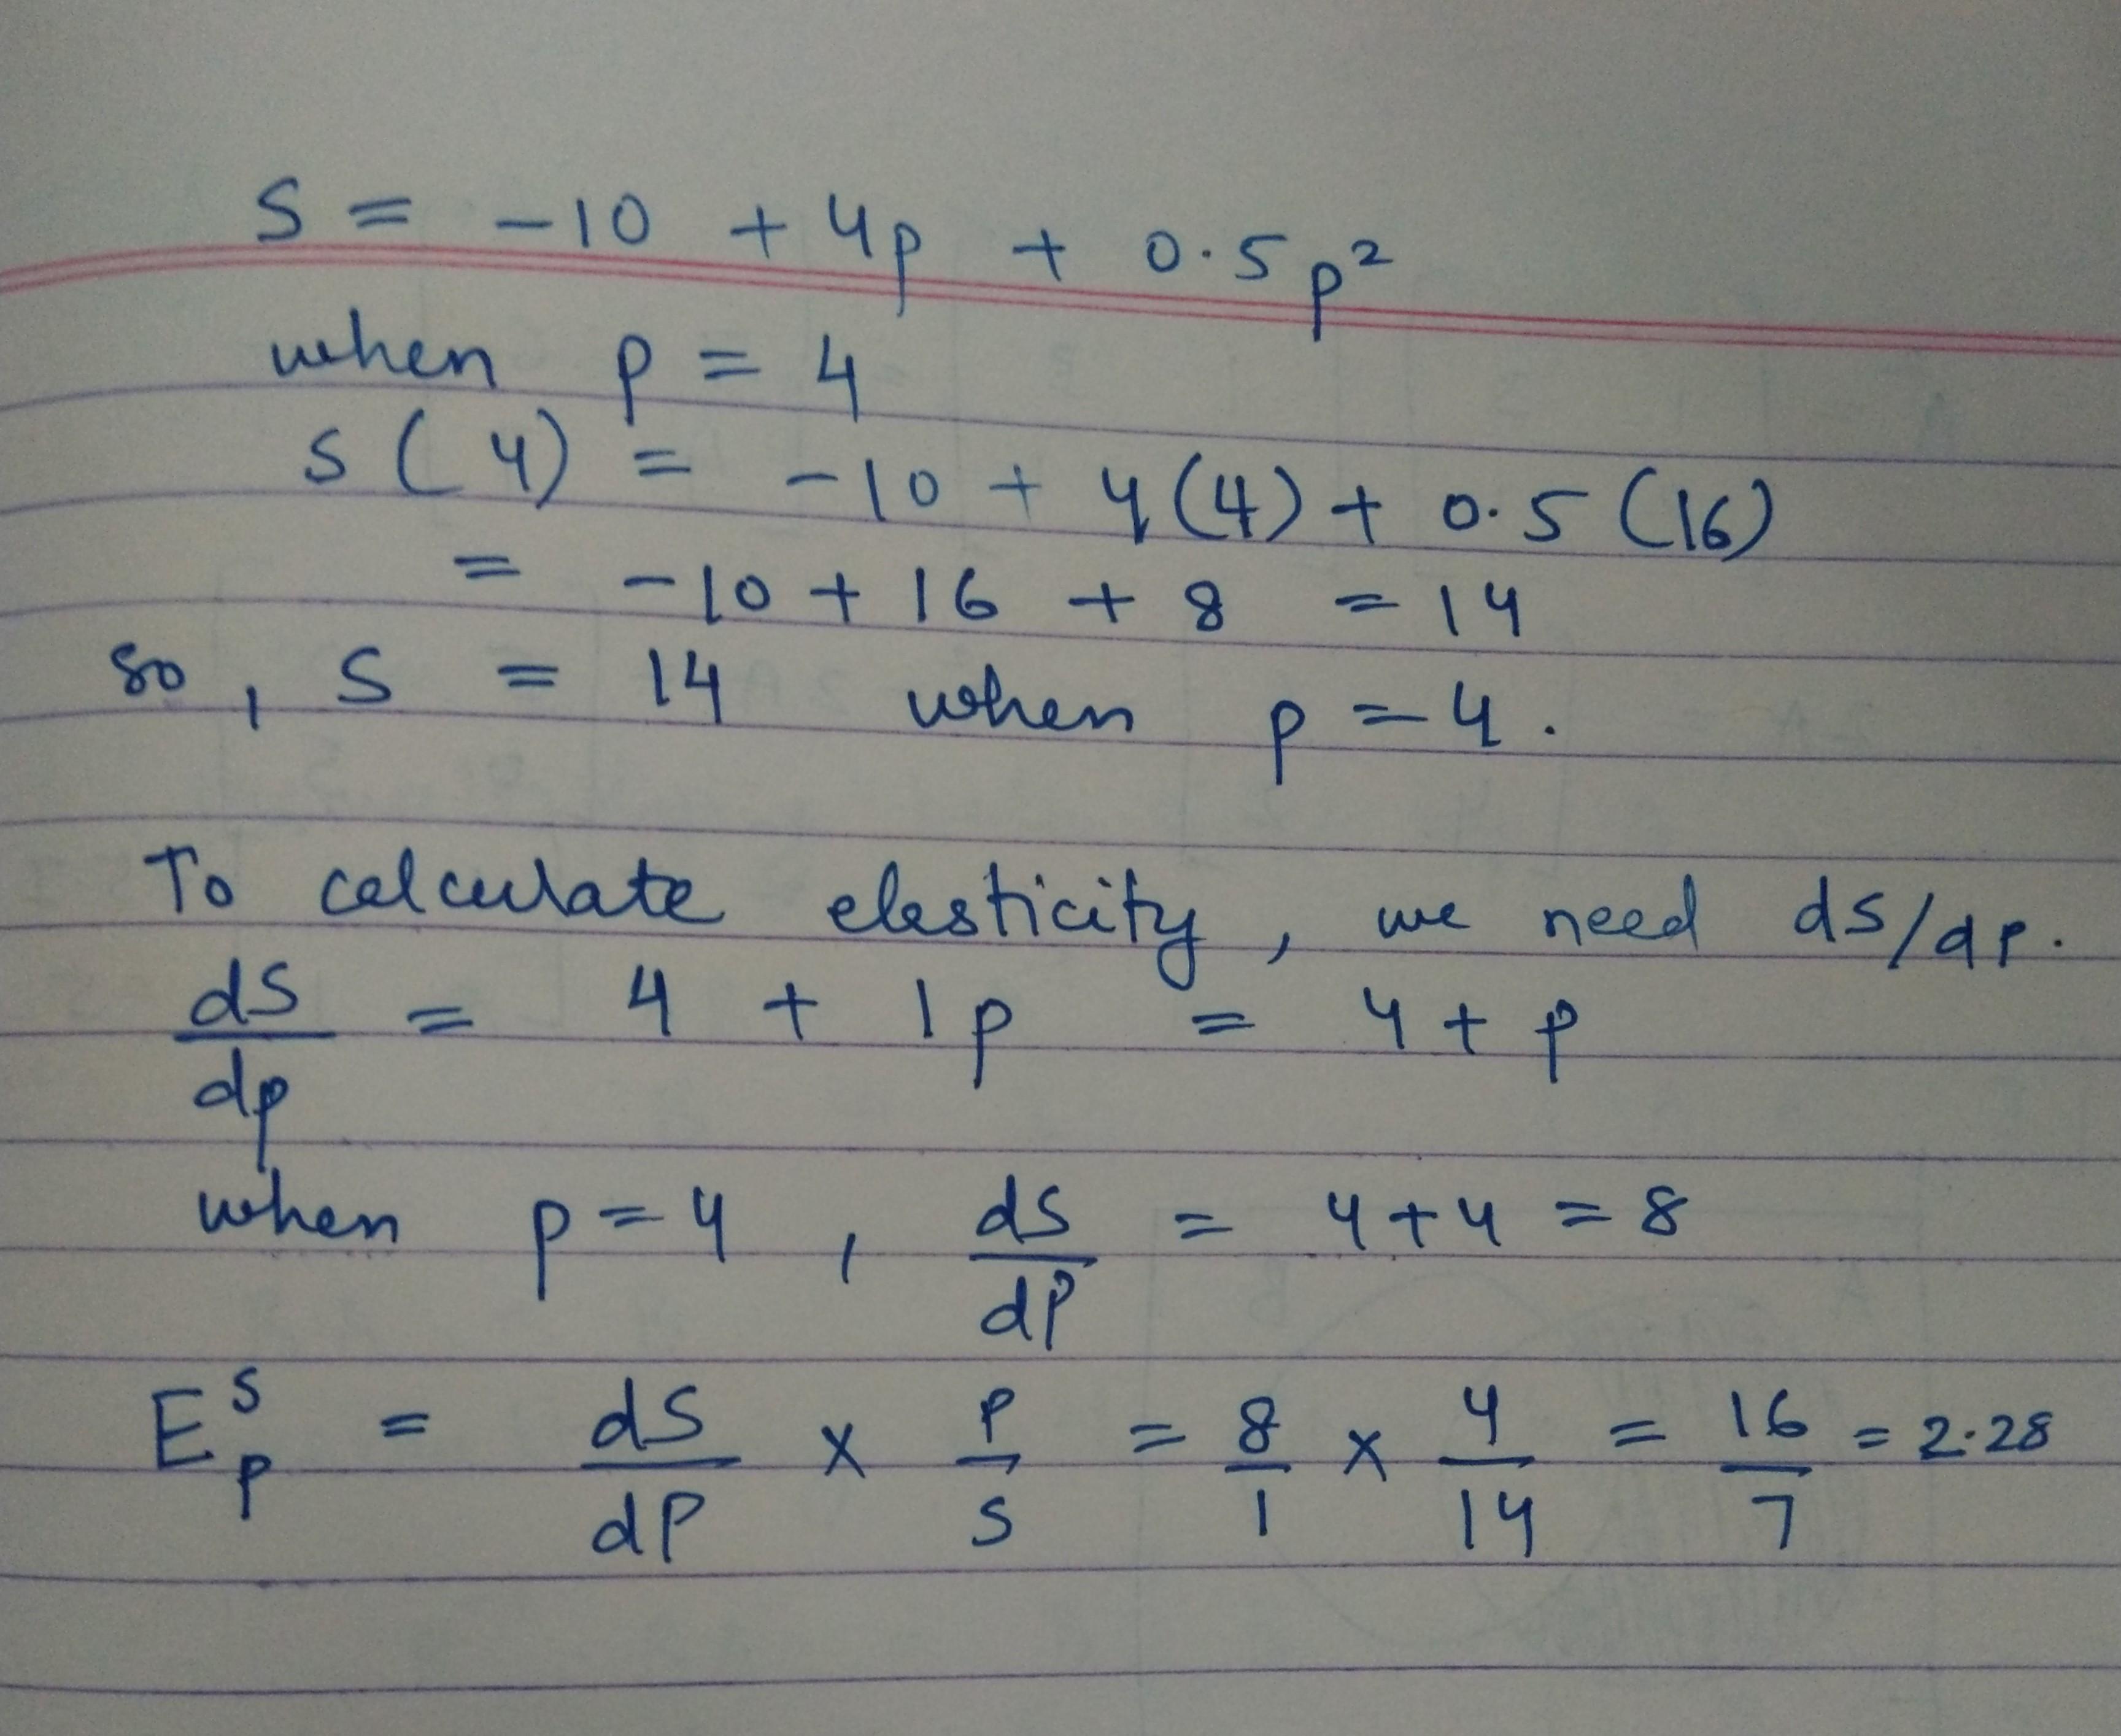 S = -10 + 4p + 0.5p²
when p = 4
S(4) = -10 + 4(4) + 0.5(16)
= -10 + 16 + 8 = 14
so, S = 14 when p = 4.
To calculate elasticity, we need ds/dp.
dS/dp = 4 + 1p = 4 + p
when p = 4, dS/dP = 4 + 4 = 8
E^S_P = dS/dP × P/S = 8/1 × 4/14 = 16/7 = 2.28